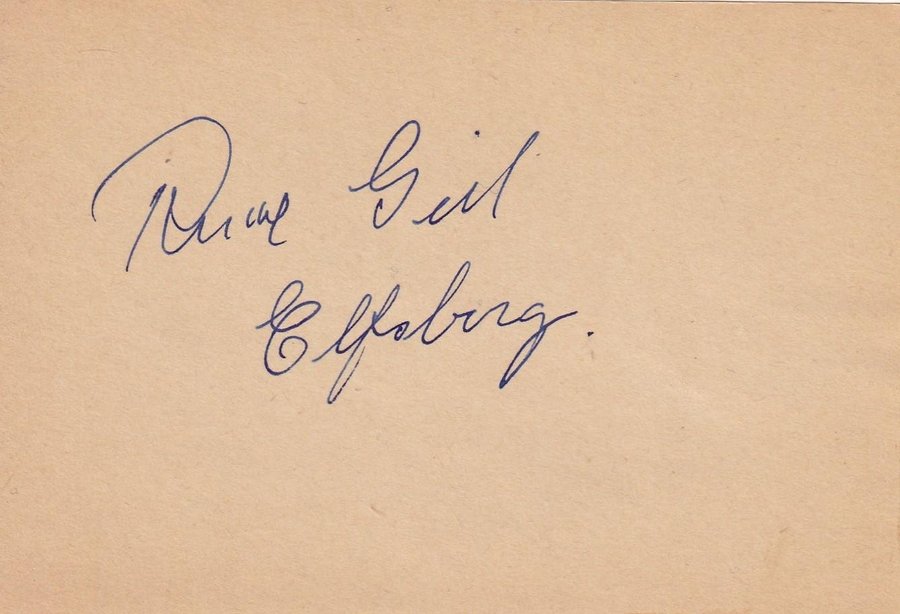 Rune Gill
Elfsborg.